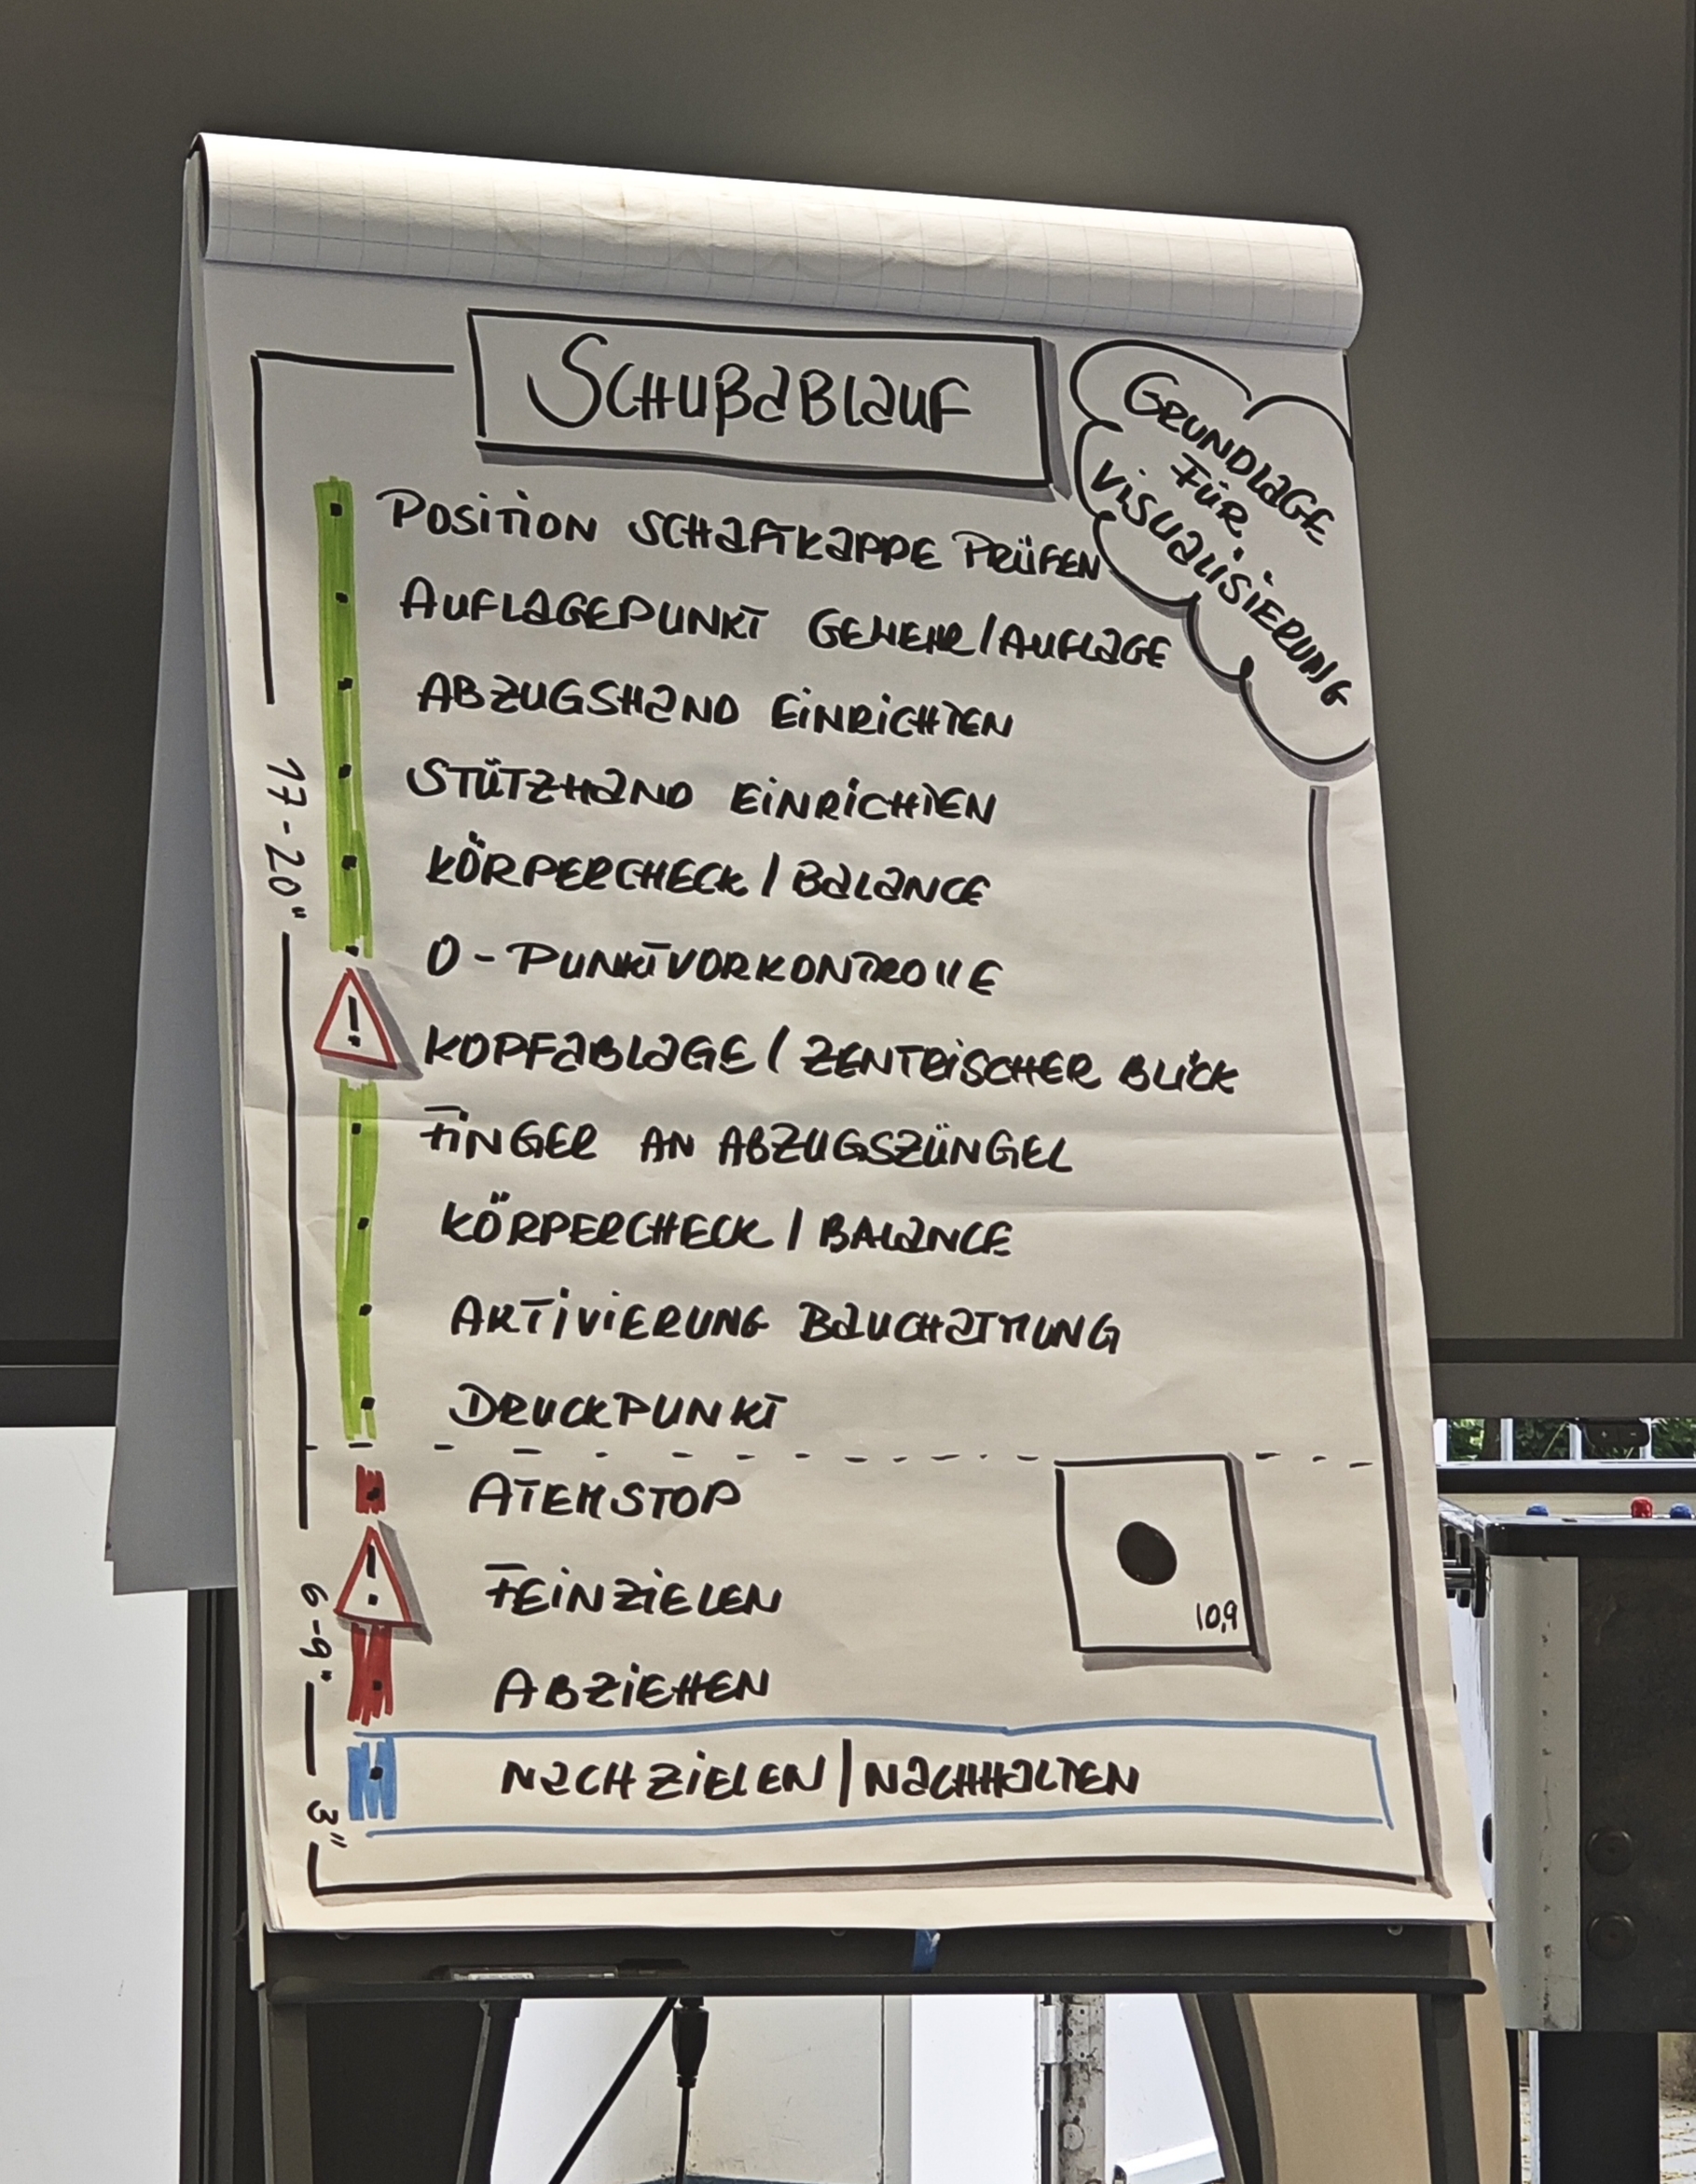 SCHUßABLAUF
GRUNDLAGE
FÜR
VISUALISIERUNG
POSITION SCHAFTKAPPE PRÜFEN
AUFLAGEPUNKT GEWEHR/AUFLAGE
ABZUGSHAND EINRICHTEN
STÜTZHAND EINRICHTEN
KÖRPERCHECK / BALANCE
0-PUNKTVORKONTROLLE
!
KOPFABLAGE / ZENTRISCHER BLICK
FINGER AN ABZUGSZÜNGEL
KÖRPERCHECK / BALANCE
AKTIVIERUNG BAUCHATMUNG
DRUCKPUNKT
17-20"
ATEMSTOP
!
FEINZIELEN
ABZIEHEN
10,9
6-9"
NACHZIELEN/NACHHALTEN
3"